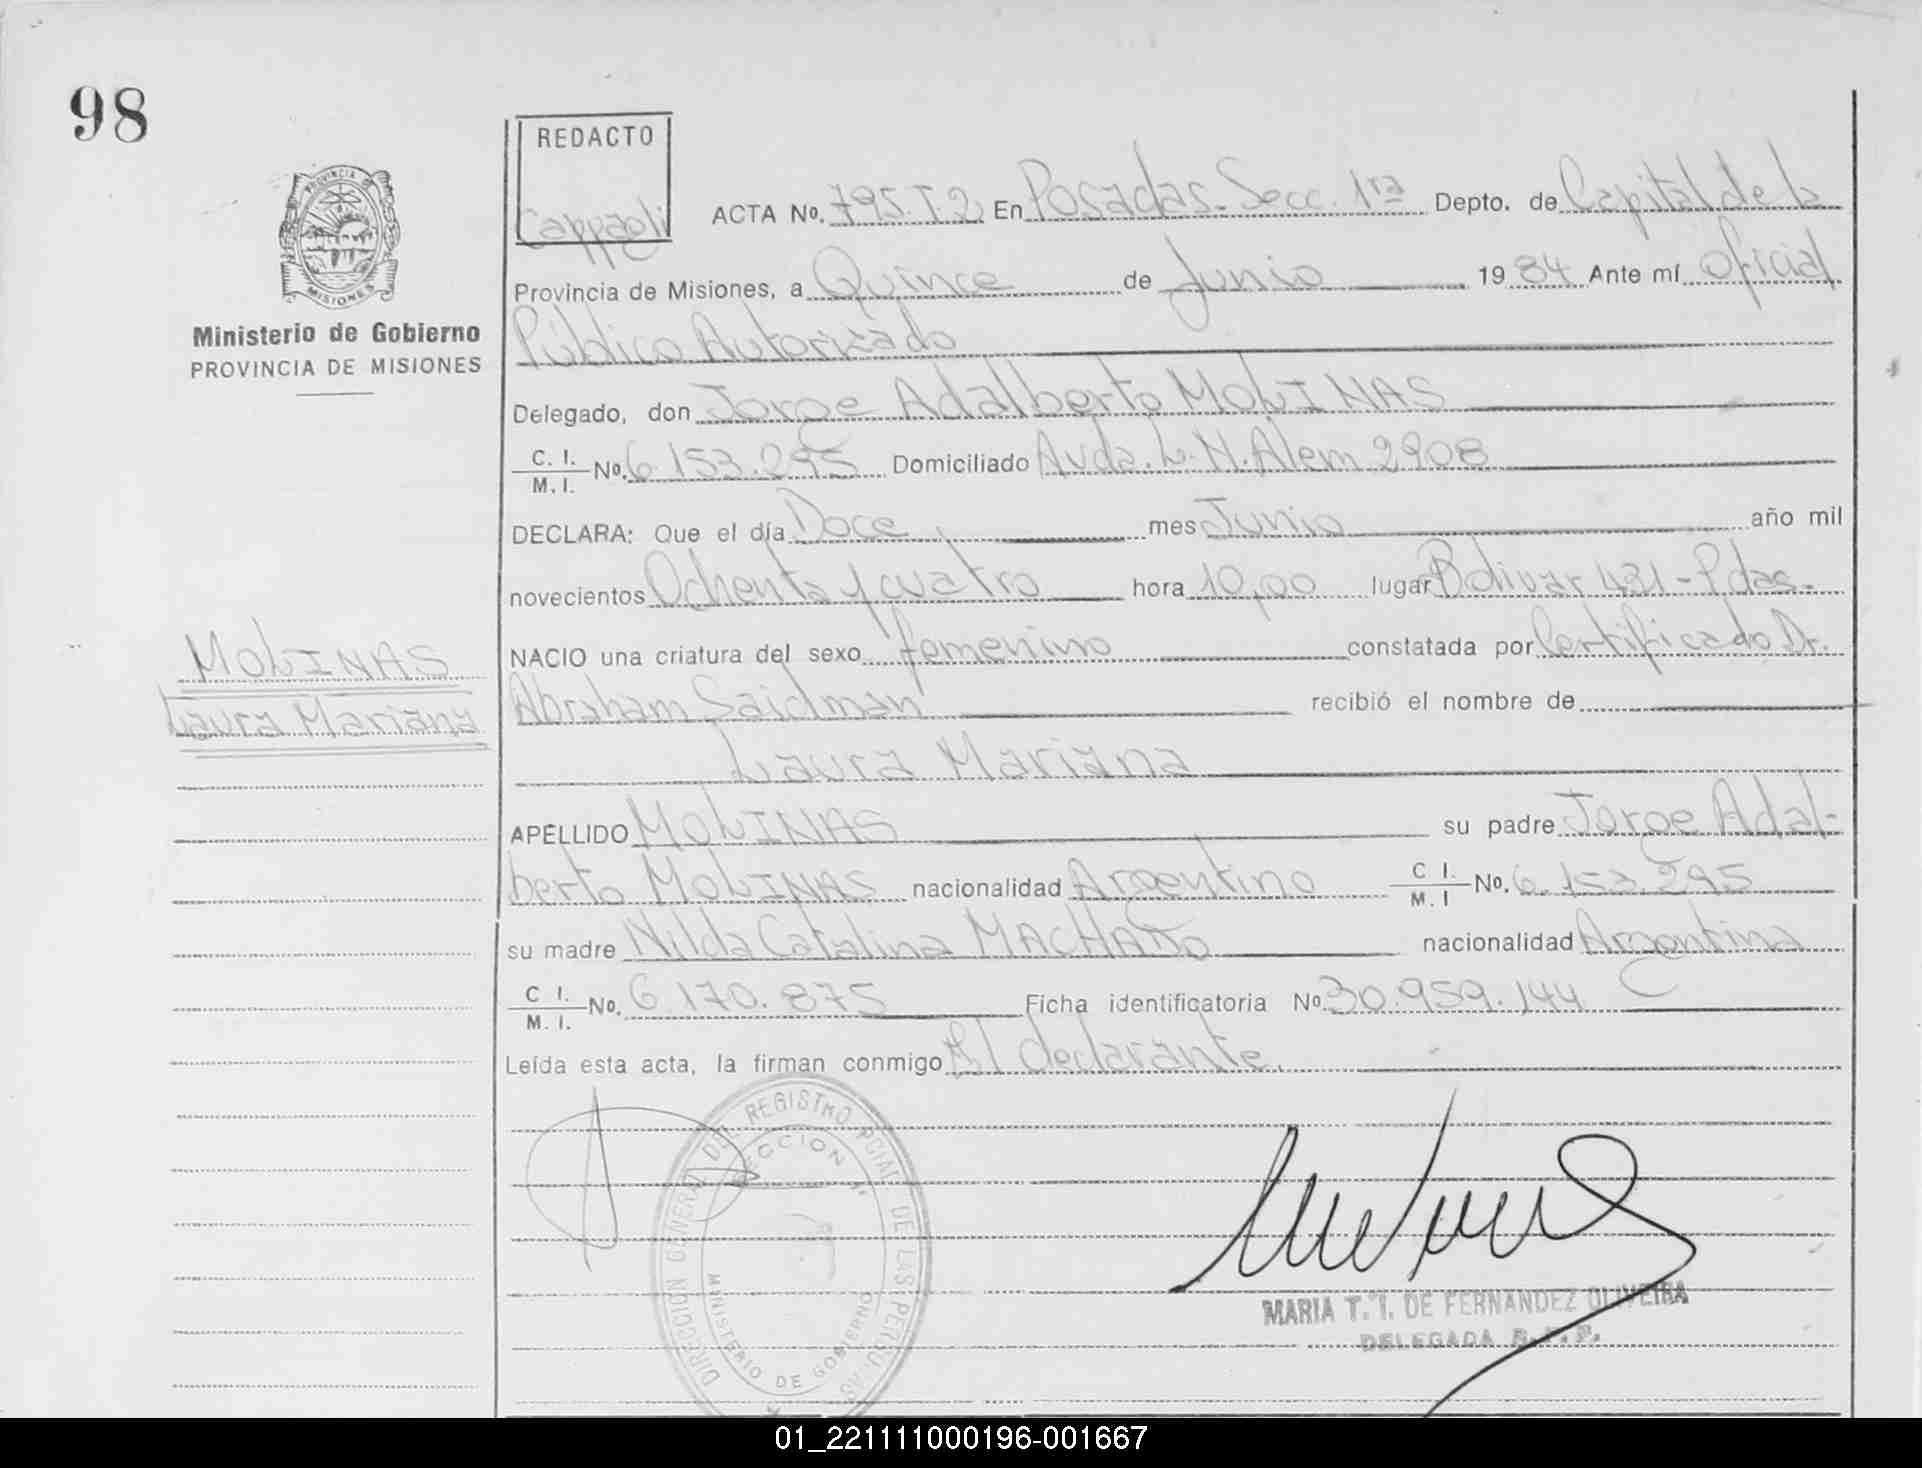 98
REDACTO
Cappagli
PROVINCIA DE
MISIONES
Ministerio de Gobierno
PROVINCIA DE MISIONES
ACTA No. 795.T.2. En Posadas-Secc. 1ra Depto. de Capital de la
Provincia de Misiones, a Quince de Junio 1984 Ante mí Oficial
Público Autorizado
Delegado, don Jorge Adalberto MOLINAS
C. I.
M. I. No. 6.153.295 Domiciliado Avda. L.N. Alem 2908
DECLARA: Que el día Doce mes Junio año mil
novecientos Ochenta y cuatro hora 10,00 lugar Bolivar 431-Pdas.
NACIO una criatura del sexo femenino constatada por Certificado Dr.
Abraham Saidman recibió el nombre de
Laura Mariana
MOLINAS
Laura Mariana
APELLIDO MOLINAS su padre Jorge Adal-
berto MOLINAS nacionalidad Argentino C I.
M. I No. 6.153.295
su madre Nilda Catalina MACHADO nacionalidad Argentina
C I.
M. I. No. 6.170.875 Ficha identificatoria No 30.959.144
Leída esta acta, la firman conmigo El declarante.
DIRECCION GENERAL DEL REGISTRO PCIAL. DE LAS PERSONAS
SECCION 1ª
MINISTERIO DE GOBIERNO
MARIA T. I. DE FERNANDEZ OLIVEIRA
DELEGADA R. P. P.
01_221111000196-001667